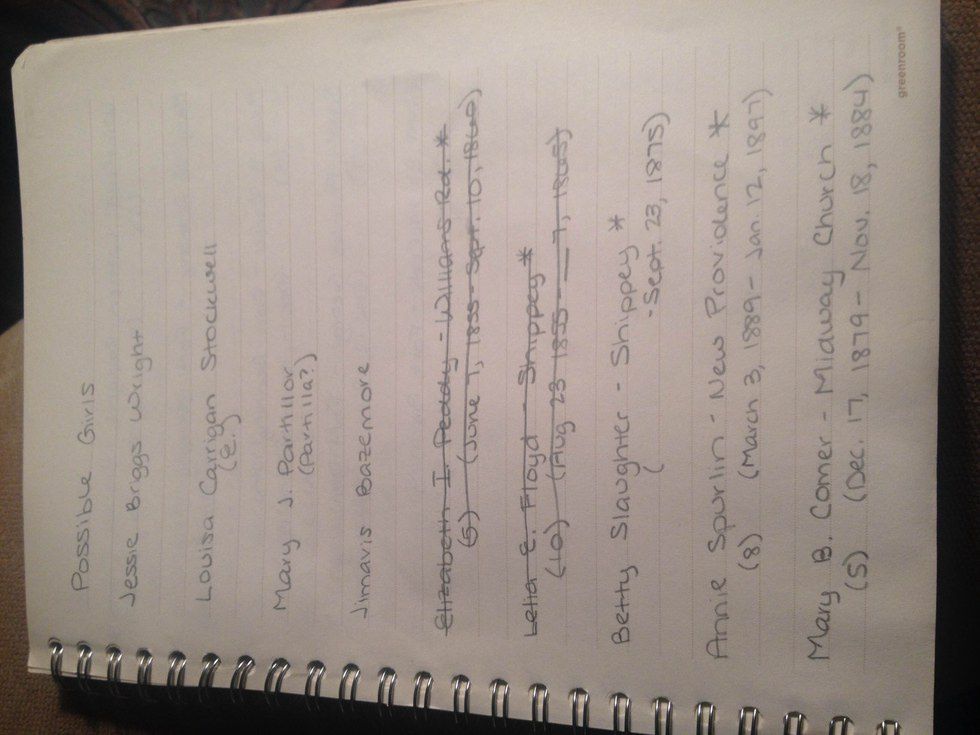 Possible Girls
Jessie Briggs Wright
Louisa Carrigan Stockwell
(E.)
Mary J. Partillor
(Partilla?)
Jimavis Bazemore
Elizabeth I. Peddy - Williams Rd. *
(5) (June 7, 1855 - Sept. 10, 1860)
Letia E. Floyd - Shippey *
(10) (Aug 23 1855 - __ 7, 1865)
Betty Slaughter - Shippey *
( - Sept. 23, 1875)
Annie Spurlin - New Providence *
(8) (March 3, 1889 - Jan. 12, 1897)
Mary B. Comer - Midway Church *
(5) (Dec. 17, 1879 - Nov. 18, 1884)
greenroom®